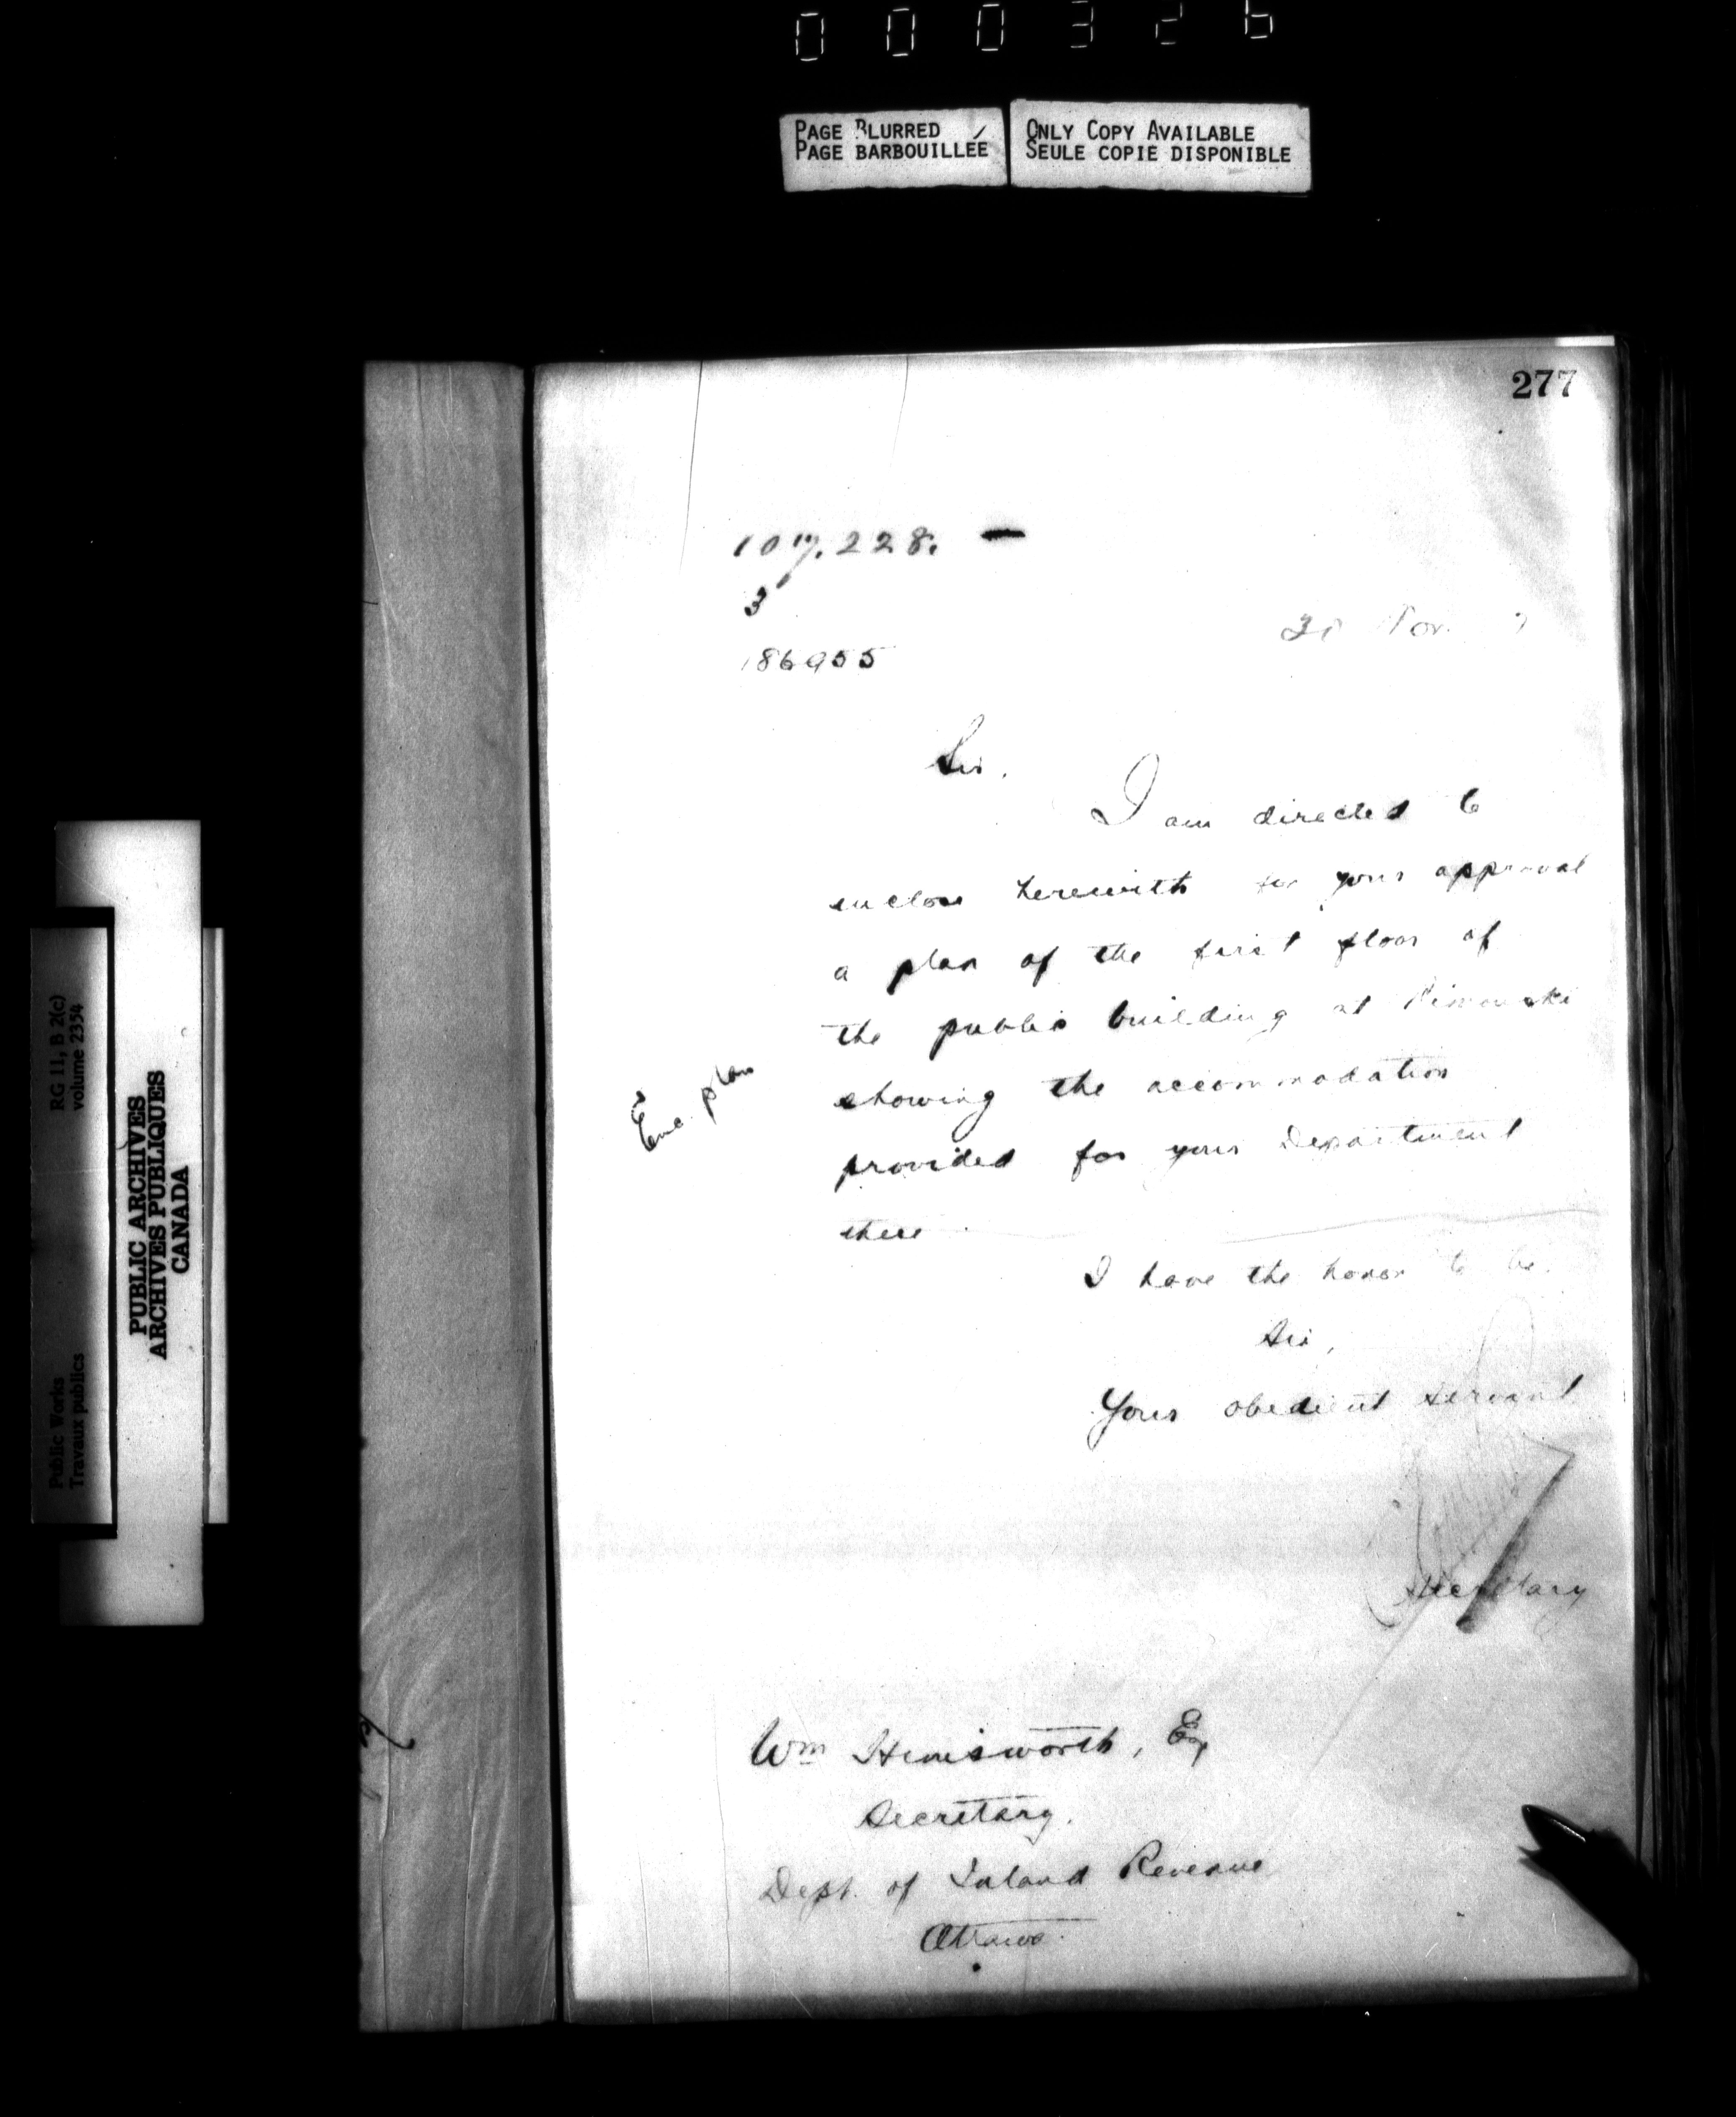 000326
PAGE BLURRED
PAGE BARBOUILLÉE
ONLY COPY AVAILABLE
SEULE COPIE DISPONIBLE
277
107.228. —
3
186955
Nov.
Sir,
I am directed to
enclose herewith for your approval
a plan of the first floor of
the public building at Rimouski
showing the accommodation
provided for your Department
there
Enc. plan
I have the honor to be.
Sir,
Your obedient servant
Secretary
Wm Himsworth, Esq
Secretary.
Dept. of Inland Revenue
Ottawa.
RG 11, B 2(c)
volume 2354
Public Works
Travaux publics
PUBLIC ARCHIVES
ARCHIVES PUBLIQUES
CANADA